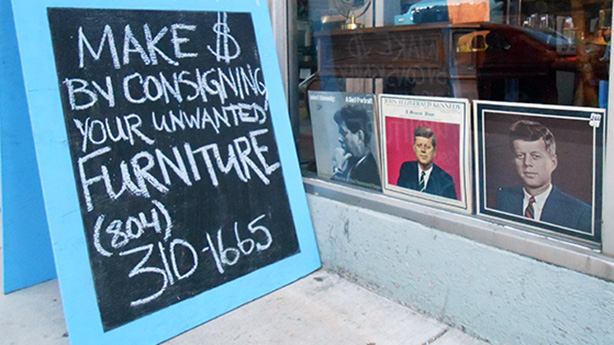 MAKE $
BY CONSIGNING
YOUR UNWANTED
FURNITURE
(804)
310-1665
A Self-Portrait
JOHN FITZGERALD KENNEDY